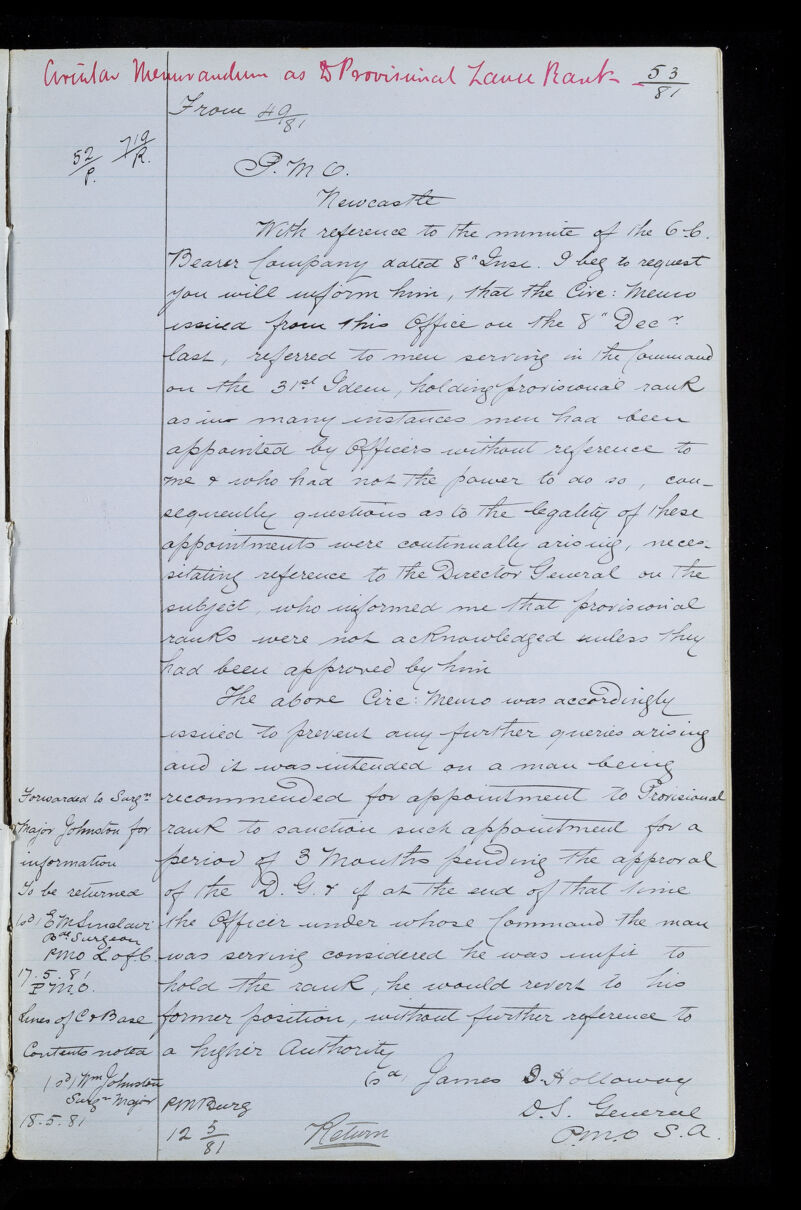 Circular Memorandum as to Provisional Lance Rank 53/81
From 49/81
52/P. 719/R.
P.M.O.
Newcastle
With reference to the minute of the O.C.
Bearer Company dated 8" Inst. I beg to request
you will inform him, that the Circ: Memo
issued from this Office on the 8" Decr
last, referred to men serving in the Command
on the 31st Idem, holding provisional rank
as in many instances men had been
appointed by Officers without reference to
me & who had not the power to do so, con-
sequently questions as to the legality of these
appointments were continually arising, neces-
sitating reference to the Director General on the
subject, who informed me that provisional
ranks were not acknowledged unless they
had been approved by him
The above Circ: Memo was accordingly
issued to prevent any further queries arising
and it was intended on a man being
recommended for appointment to Provisional
rank to sanction such appointment for a
period of 3 Months pending the approval
of the D.G. & if at the end of that time
the Officer under whose Command the man
was serving considered he was unfit to
hold the rank, he would revert to his
former position, without further reference to
a higher Authority
(sd) James Holloway
D.S. General
P.M.O. S.A.
PMBurg
12 5/81
Return
Forwarded to Surgn
Major Johnston for
information
To be returned
(sd) E M Sinclair
Bde Surgeon
PMO L of C.
17.5.81
P.M.O.
Lines of C & Base
Contents noted
(sd) Wm Johnston
Surgn Major
18.5.81